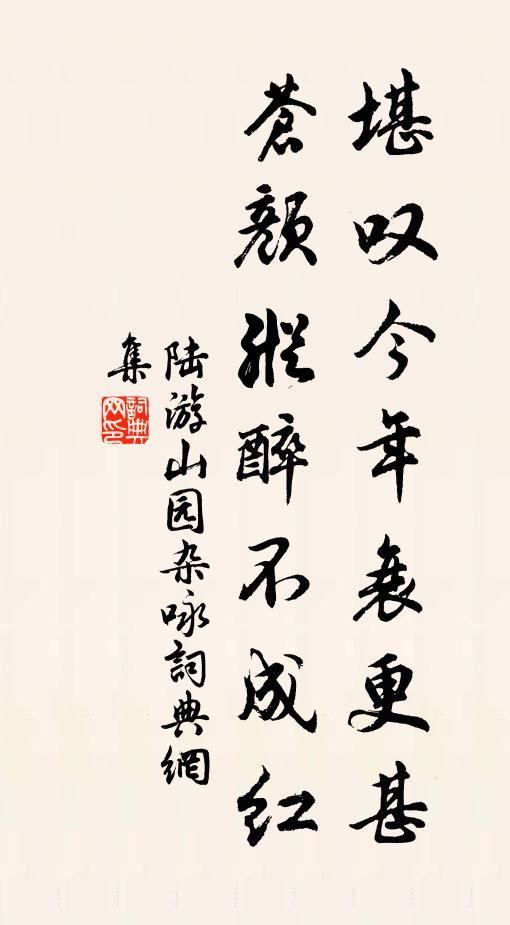 堪叹今年衰更甚
苍颜纵醉不成红
陆游山园杂咏詞典網
集
詞典
网印